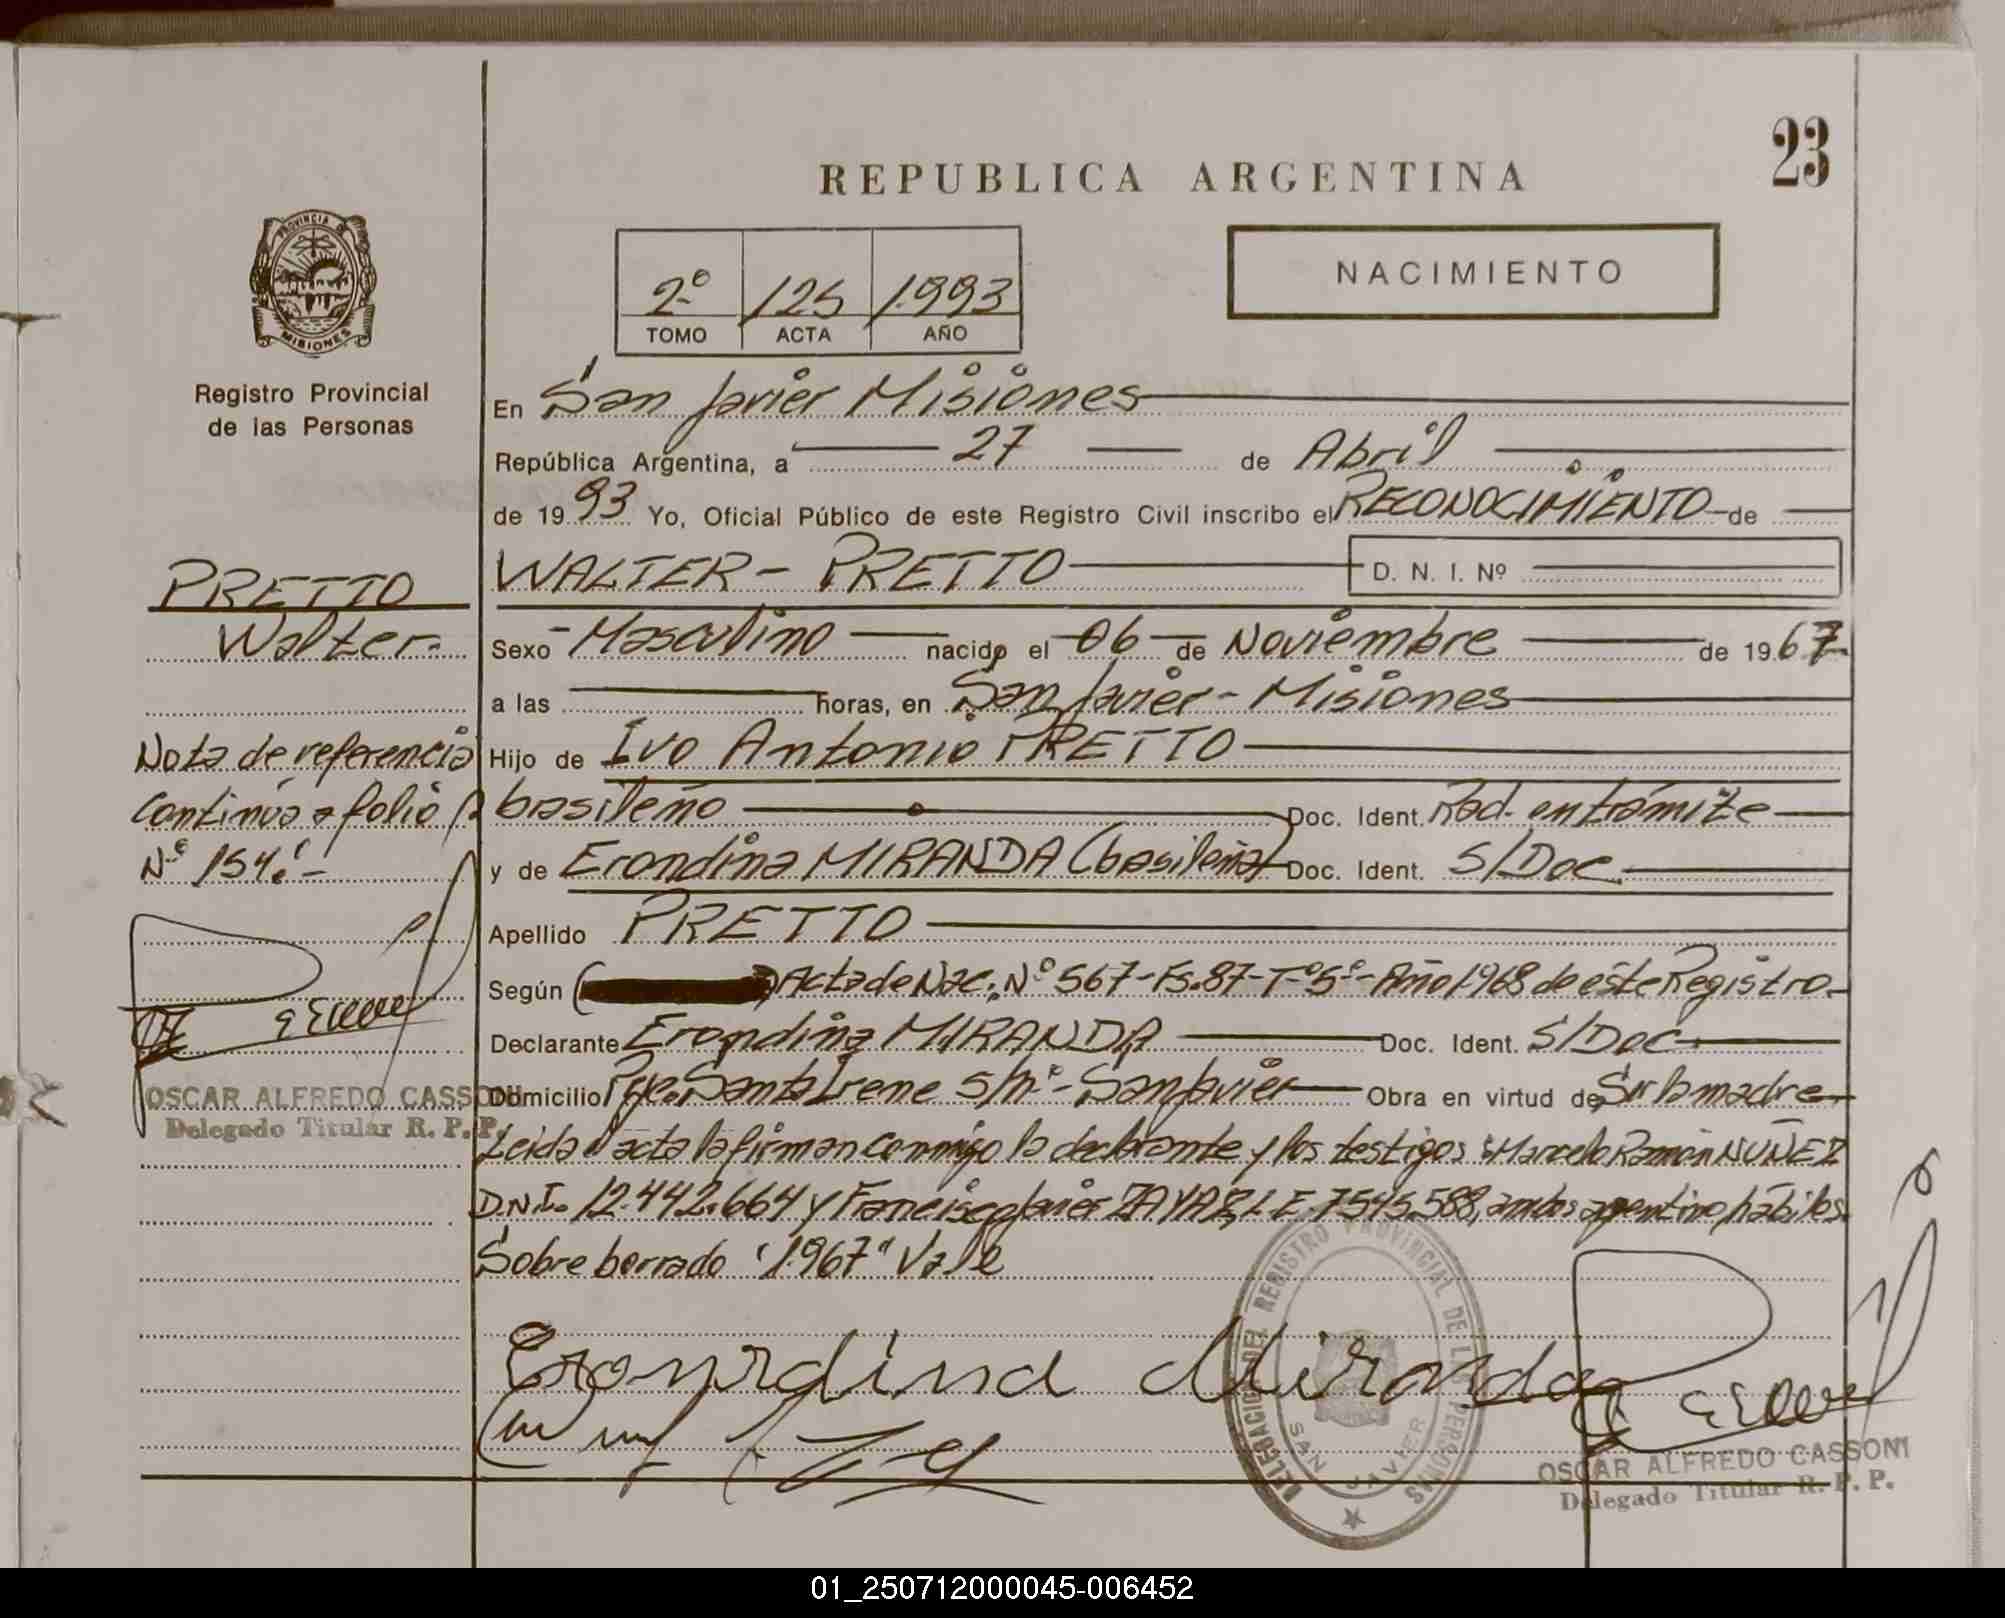 23
REPUBLICA ARGENTINA
PROVINCIA DE
MISIONES
Registro Provincial
de las Personas
2º 125 1.993
TOMO ACTA AÑO
NACIMIENTO
En San Javier Misiones
República Argentina, a 27 de Abril
de 1993 Yo, Oficial Público de este Registro Civil inscribo el RECONOCIMIENTO de
WALTER - PRETTO D. N. I. Nº
Sexo - Masculino nacido el 06 de Noviembre de 1967
a las horas, en San Javier - Misiones
Hijo de Ivo Antonio PRETTO
brasileño Doc. Ident. Rad. en trámite
y de Erondina MIRANDA (brasileña) Doc. Ident. S/Doc.
Apellido PRETTO
Según ( ) Acta de Nac. Nº 567-Fs.87-Tº5º-Año 1968 de este Registro.-
Declarante Erondina MIRANDA Doc. Ident. S/Doc
Domicilio Pje. Santa Irene s/nº - San Javier Obra en virtud de Ser la madre
Leida el acta la firman conmigo la declarante y los testigos: Marcelo Ramón NUÑEZ
D.N.I. 12.442.664 y Francisco Javier L.E. 7545.588, ambos argentino hábiles.
Sobre borrado "1.967" Vale
PRETTO
Walter.-
Nota de referencia
Continúa a folio
Nº 154.-
OSCAR ALFREDO CASSONI
Delegado Titular R. P. P.
Erondina Miranda
DELEGACION DEL REGISTRO PROVINCIAL DE LAS PERSONAS
SAN JAVIER
OSCAR ALFREDO CASSONI
Delegado Titular R. P. P.
01_250712000045-006452